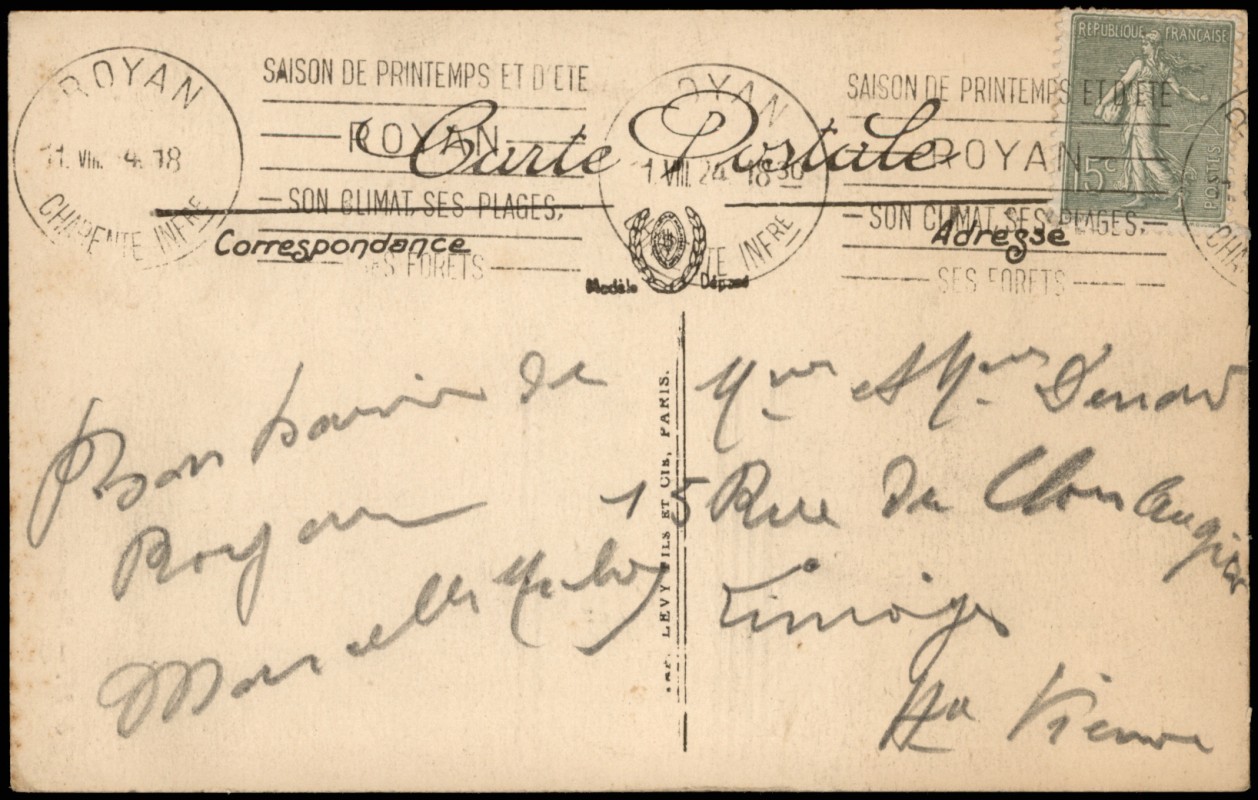 RÉPUBLIQUE FRANÇAISE
15c
POSTES
ROYAN
11. VIII. 24. 18
CHARENTE INFRE
SAISON DE PRINTEMPS ET D'ÉTÉ
ROYAN
SON CLIMAT, SES PLAGES,
SES FORETS
ROYAN
1. VIII. 24. 18 30
TE INFRE
SAISON DE PRINTEMPS ET D'ÉTÉ
ROYAN
SON CLIMAT, SES PLAGES,
SES FORETS
CHA
Carte Postale
Correspondance
Adresse
Modèle Déposé
LEVY FILS ET CIE, PARIS.
Bon Souvenir de
Royan
Marcelle
Mme et Mr
15 Rue du
Limoges
Hte Vienne